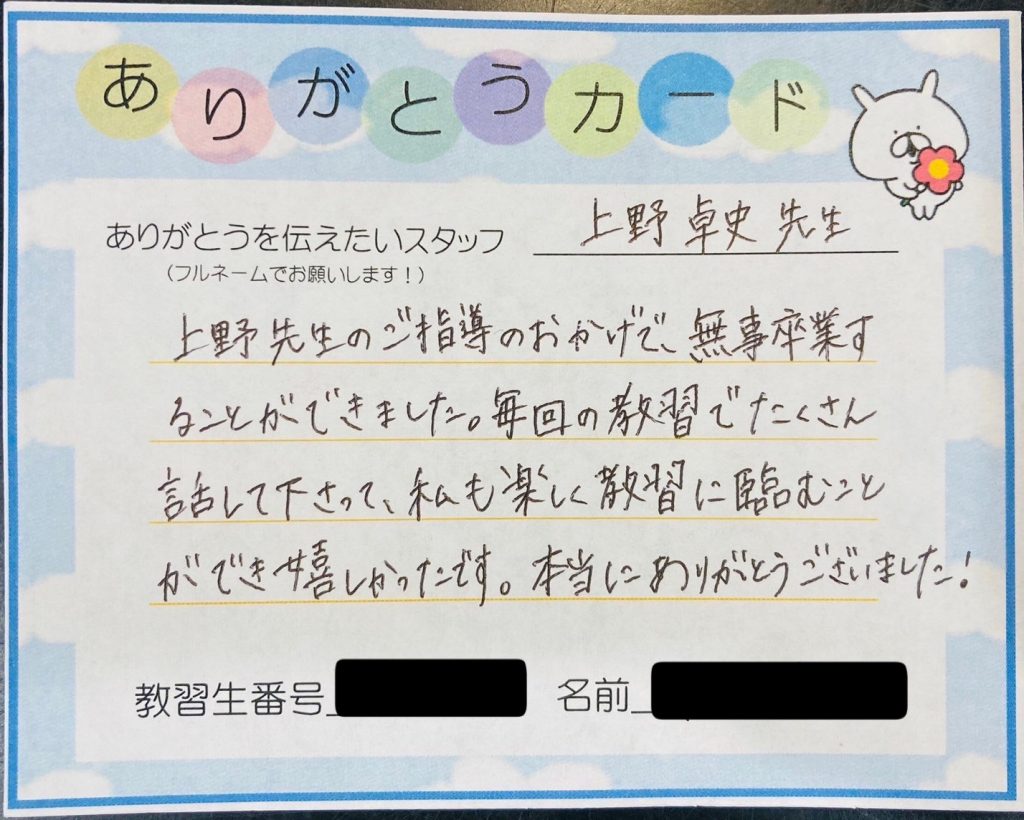 ありがとうカード
ありがとうを伝えたいスタッフ 上野 卓史 先生
(フルネームでお願いします!)
上野先生のご指導のおかげで、無事卒業す
ることができました。毎回の教習でたくさん
話して下さって、私も楽しく教習に臨むこと
ができ嬉しかったです。本当にありがとうございました!
教習生番号 名前